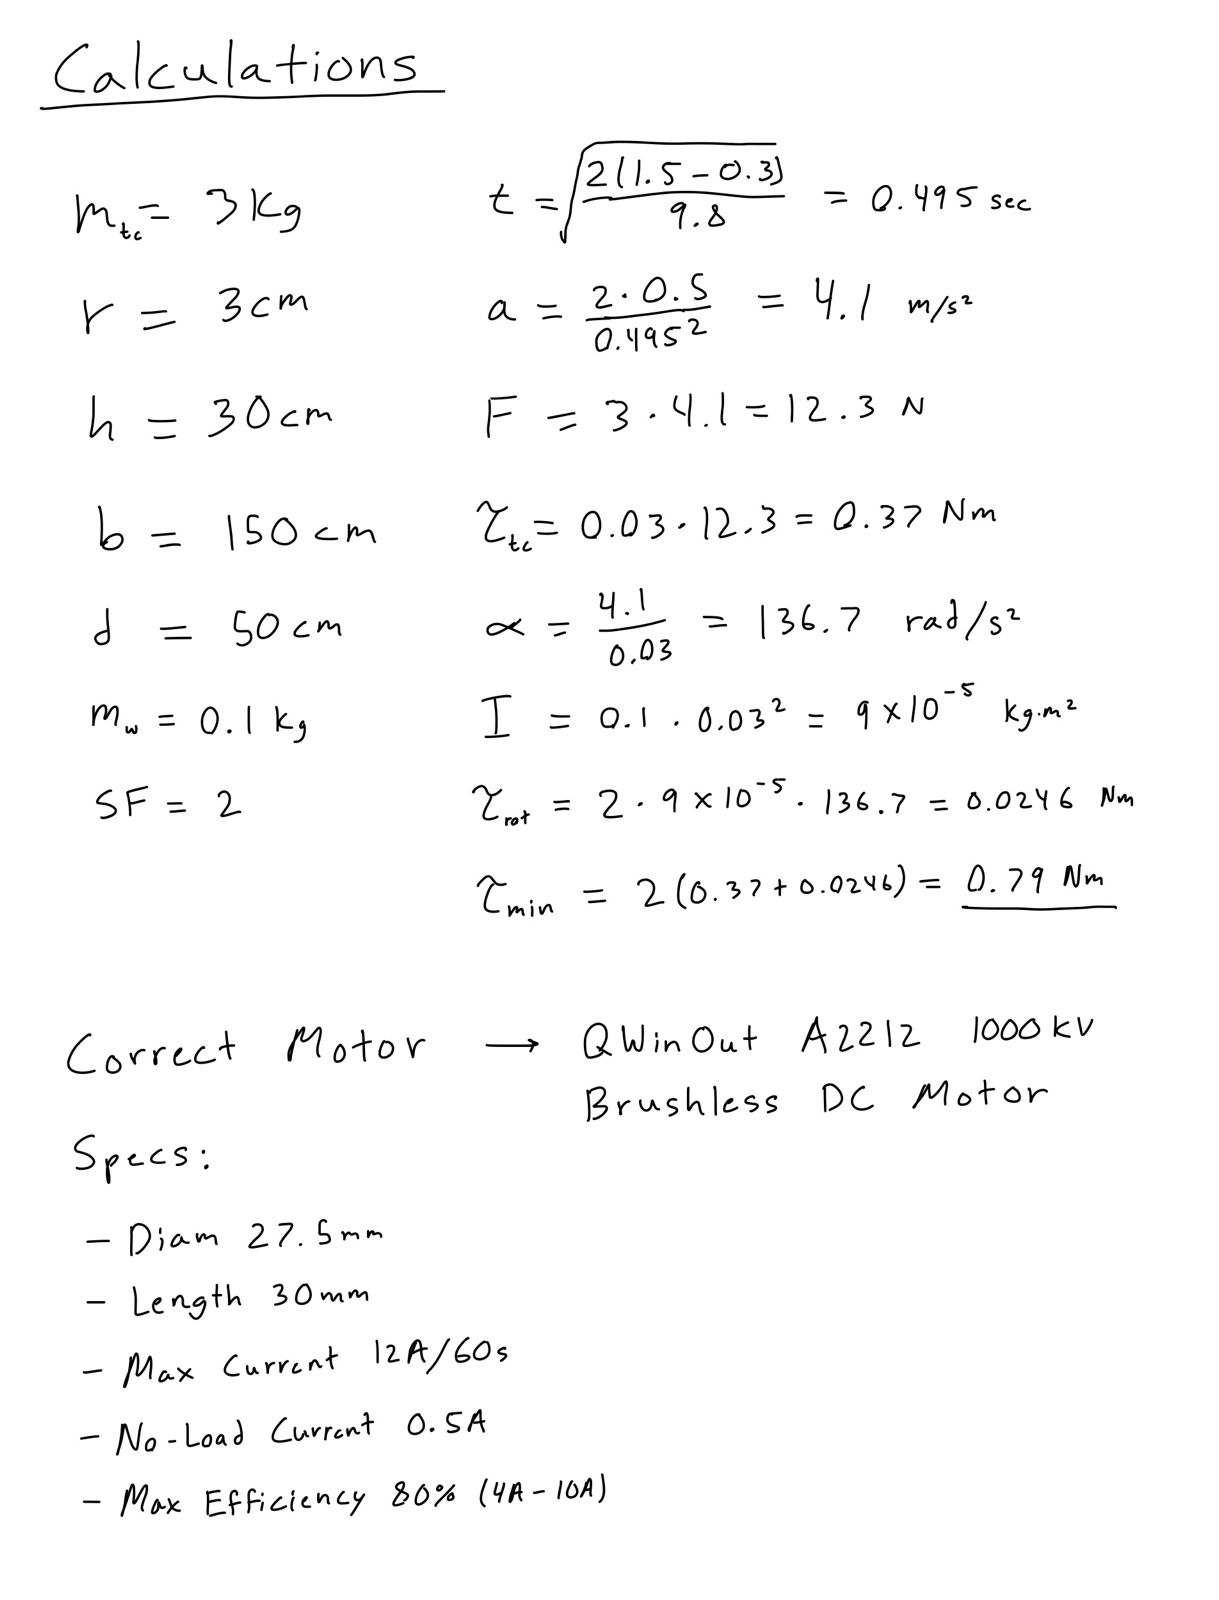 Calculations
m_tc = 3 Kg
r = 3 cm
h = 30 cm
b = 150 cm
d = 50 cm
m_w = 0.1 kg
SF = 2
t = √(2(1.5 - 0.3)/9.8) = 0.495 sec
a = 2 · 0.5 / 0.495² = 4.1 m/s²
F = 3 · 4.1 = 12.3 N
τ_tc = 0.03 · 12.3 = 0.37 Nm
α = 4.1 / 0.03 = 136.7 rad/s²
I = 0.1 · 0.03² = 9 x 10⁻⁵ kg·m²
τ_rot = 2 · 9 x 10⁻⁵ · 136.7 = 0.0246 Nm
τ_min = 2 (0.37 + 0.0246) = 0.79 Nm
Correct Motor → QWinOut A2212 1000 kV
Brushless DC Motor
Specs:
- Diam 27.5mm
- Length 30mm
- Max Current 12A/60s
- No-Load Current 0.5A
- Max Efficiency 80% (4A - 10A)